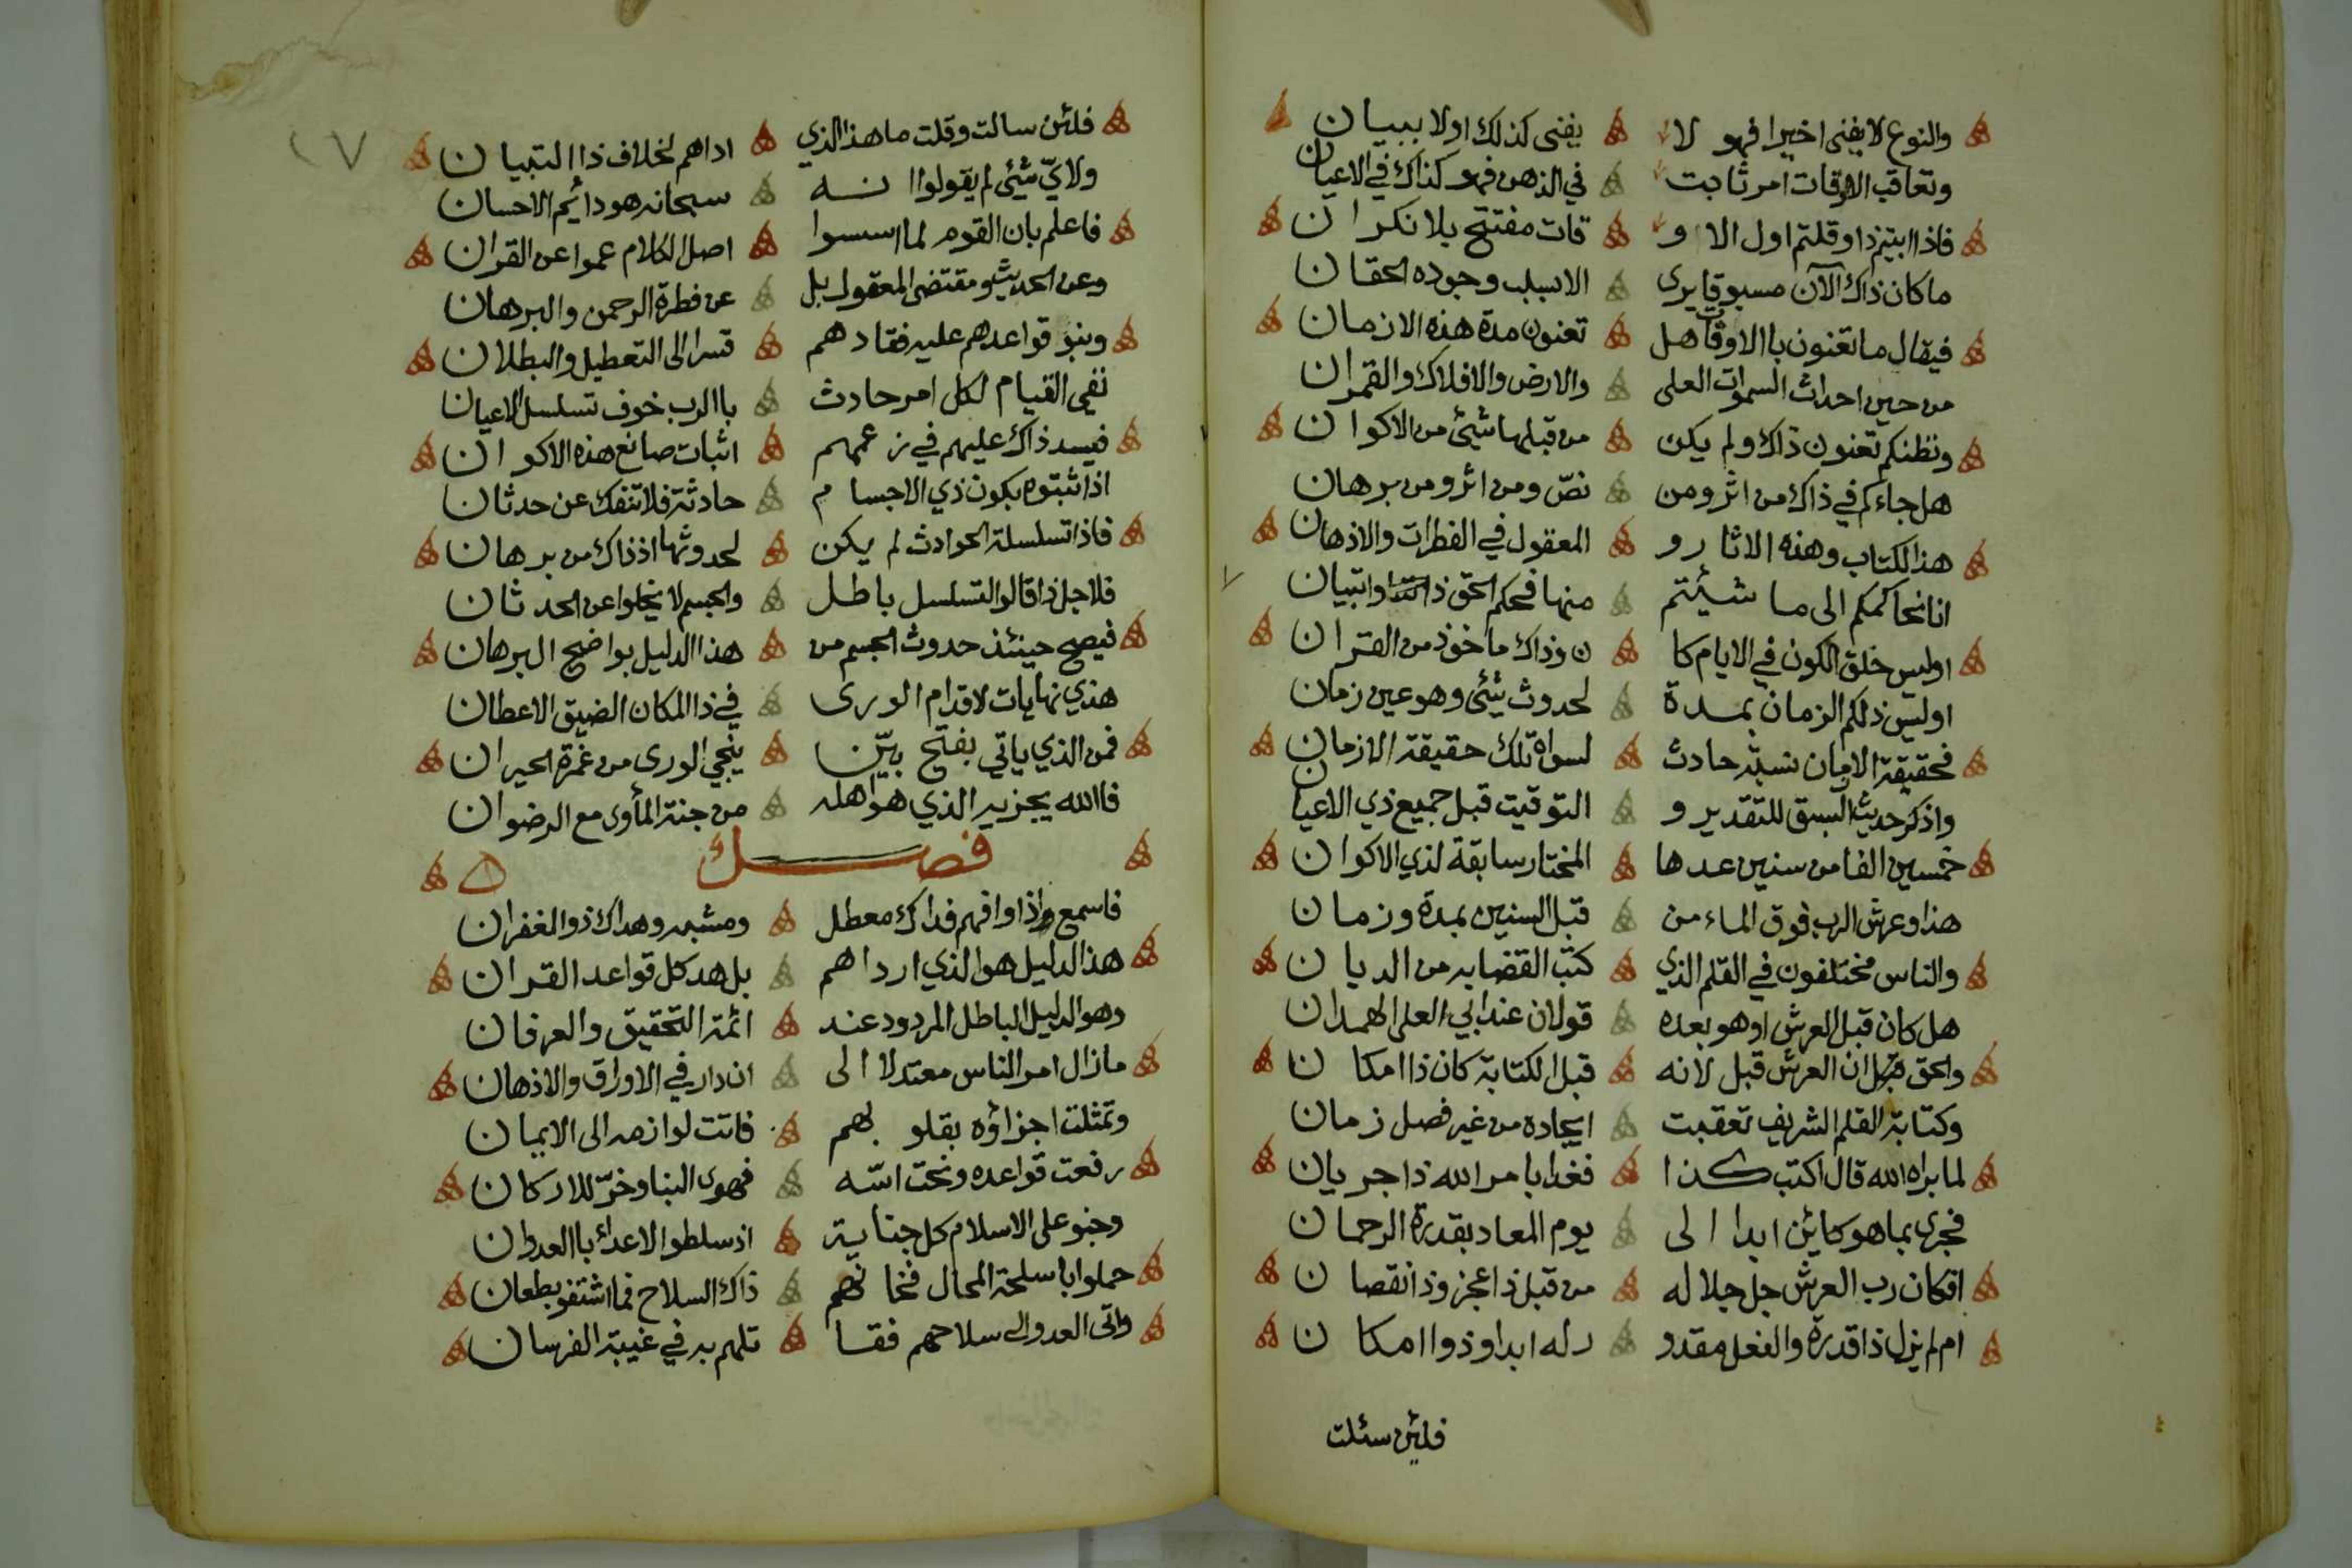 والنوع لا يفنى اخيرا فهو لا يفنى كذلك اولا ببيان
وتعاقب الاوقات امر ثابت في الذهن فهو كذاك في الاعيان
فاذا ابيتم ذا وقلتم اول الا وقات مفتتح بلا نكران
ما كان ذاك الآن مسبوقا يرى الا بسلب وجوده الحقان
فيقال ما تعنون باالاوقات هل تعنون مدة هذه الازمان
من حين احداث السموات العلى والارض والافلاك والقمران
ونظنكم تعنون ذاك ولم يكن من قبلها شيئ من الاكوان
هل جاءكم في ذاك من اثر ومن نصّ ومن اثر ومن برهان
هذا الكتاب وهذه الاثار و المعقول في الفطرات والاذهان
انا نحاكمكم الى ما شيئتم منها فحكم الحق ذا وا تبيان
اوليس خلق الكون في الايام كا ن وذاك ماخوذ من القران
اوليس ذلكم الزمان بمدة لحدوث شيئ وهو عين زمان
فحقيقة الازمان نسبة حادث لسواه تلك حقيقة الازمان
واذكر حديث السبق للتقدير و التوقيت قبل جميع ذي الاعيان
خمسين الفا من سنين عدها المختار سابقة لذي الاكوان
هذا وعرش الرب فوق الماء من قبل السنين بمدة وزمان
والناس مختلفون في القلم الذي كتب القضا به من الديان
هل كان قبل العرش او هو بعده قولان عند ابي العلى الهمدان
والحق ان العرش قبل لانه قبل الكتابة كان ذا امكان
وكتابة القلم الشريف تعقبت ايجاده من غير فصل زمان
لما براه الله قال اكتب كذا فغدا بامر الله ذا جريان
فجرى بما هو كائن ابدا الى يوم المعاد بقدرة الرحمان
افكان رب العرش جل جلاله من قبل ذا عجز وذا نقصان
ام لم يزل ذا قدرة والفعل مقدو ر له ابدا وذو امكان
فلئن سئلت
٢٧
فلئن سالت وقلت ما هذا الذي اداهم لخلاف ذا التبيان
ولايّ شيئ لم يقولوا انه سبحانه هو دائم الاحسان
فاعلم بان القوم لما اسسوا اصل الكلام عموا عن القران
وعن الحديث ومقتضى المعقول بل عن فطرة الرحمن والبرهان
وبنو قواعدهم عليه فقادهم قسرا الى التعطيل والبطلان
نفي القيام لكل امر حادث باالرب خوف تسلسل الاعيان
فيسد ذاك عليهم في زعمهم اثبات صانع هذه الاكوان
اذ اثبتوه بكون ذي الاجسام حادثة فلا تنفك عن حدثان
فاذا تسلسلة الحوادث لم يكن لحدوثها اذ ذاك من برهان
فلاجل ذا قالوا التسلسل باطل والجسم لا يخلوا عن الحدثان
فيصح حينئذ حدوث الجسم من هذا الدليل بواضح البرهان
هذي نهايات لاقدام الورى في ذا المكان الضيق الاعطان
فمن الذي ياتي بفتح بيّن ينجي الورى من غمرة الحيران
فاالله يجزيه الذي هو اهله من جنة المأوى مع الرضوان
فصل
فاسمع واذا وافهم فذاك معطل ومشبه وهداك ذو الغفران
هذا الدليل هو الذي ارداهم بل هد كل قواعد القران
وهو الدليل الباطل المردود عند ائمة التحقيق والعرفان
ما زال امر الناس معتدلا الى ان دار في الاوراق والاذهان
وتمثلت اجزاؤه بقلوبهم فاتت لوازمه الى الايمان
رفعت قواعده ونحت اسّه فهوى البنا وخرّ للاركان
وجنو على الاسلام كل جناية اذ سلطوا الاعداء باالعدوان
حملوا باسلحة المحال فخانهم ذاك السلاح فما اشتفو بطعان
واتى العدو الى سلاحهم فقا تلهم به في غيبة الفرسان